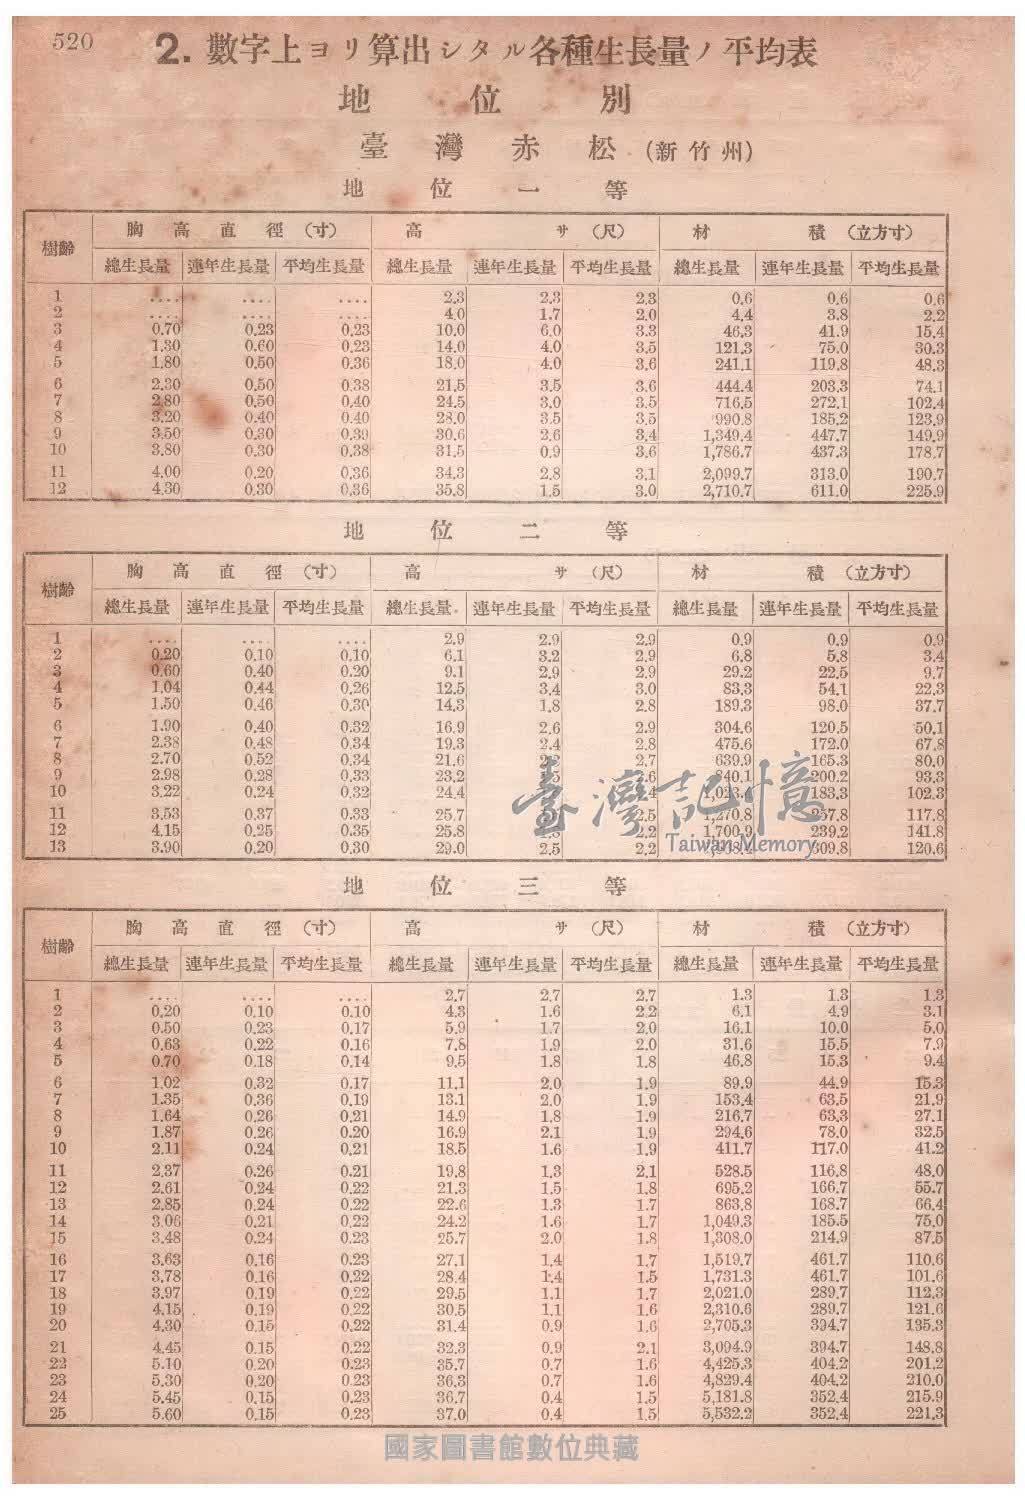 520
2. 數字上ヨリ算出シタル各種生長量ノ平均表
地位別
臺灣赤松 (新竹州)
地位一等
樹齡 胸高直徑 (寸) 高サ (尺) 材積 (立方寸)
總生長量 連年生長量 平均生長量 總生長量 連年生長量 平均生長量 總生長量 連年生長量 平均生長量
1 .... .... .... 2.3 2.3 2.3 0.6 0.6 0.6
2 .... .... .... 4.0 1.7 2.0 4.4 3.8 2.2
3 0.70 0.23 0.23 10.0 6.0 3.3 46.3 41.9 15.4
4 1.30 0.60 0.23 14.0 4.0 3.5 121.3 75.0 30.3
5 1.80 0.50 0.36 18.0 4.0 3.6 241.1 119.8 48.3
6 2.30 0.50 0.38 21.5 3.5 3.6 444.4 203.3 74.1
7 2.80 0.50 0.40 24.5 3.0 3.5 716.5 272.1 102.4
8 3.20 0.40 0.40 28.0 3.5 3.5 990.8 185.2 123.9
9 3.50 0.30 0.39 30.6 2.6 3.4 1,349.4 447.7 149.9
10 3.80 0.30 0.38 31.5 0.9 3.6 1,786.7 437.3 178.7
11 4.00 0.20 0.36 34.3 2.8 3.1 2,099.7 313.0 190.7
12 4.30 0.30 0.36 35.8 1.5 3.0 2,710.7 611.0 225.9
地位二等
樹齡 胸高直徑 (寸) 高サ (尺) 材積 (立方寸)
總生長量 連年生長量 平均生長量 總生長量 連年生長量 平均生長量 總生長量 連年生長量 平均生長量
1 .... .... .... 2.9 2.9 2.9 0.9 0.9 0.9
2 0.20 0.10 0.10 6.1 3.2 2.9 6.8 5.8 3.4
3 0.60 0.40 0.20 9.1 2.9 2.9 29.2 22.5 9.7
4 1.04 0.44 0.26 12.5 3.4 3.0 83.3 54.1 22.3
5 1.50 0.46 0.30 14.3 1.8 2.8 189.3 98.0 37.7
6 1.90 0.40 0.32 16.9 2.6 2.9 304.6 120.5 50.1
7 2.38 0.48 0.34 19.3 2.4 2.8 475.6 172.0 67.8
8 2.70 0.52 0.34 21.6 2.7 639.9 165.3 80.0
9 2.98 0.28 0.33 23.2 200.2 93.3
10 3.22 0.24 0.32 24.4 183.3 102.3
11 3.53 0.37 0.33 25.7 2.5 1,270.8 117.8
12 4.15 0.25 0.35 25.8 2.2 1,700.9 239.2 141.8
13 3.90 0.20 0.30 29.0 2.5 2.2 309.8 120.6
臺灣記憶
Taiwan Memory
地位三等
樹齡 胸高直徑 (寸) 高サ (尺) 材積 (立方寸)
總生長量 連年生長量 平均生長量 總生長量 連年生長量 平均生長量 總生長量 連年生長量 平均生長量
1 .... .... .... 2.7 2.7 2.7 1.3 1.3 1.3
2 0.20 0.10 0.10 4.3 1.6 2.2 6.1 4.9 3.1
3 0.50 0.23 0.17 5.9 1.7 2.0 16.1 10.0 5.0
4 0.63 0.22 0.16 7.8 1.9 2.0 31.6 15.5 7.9
5 0.70 0.18 0.14 9.5 1.8 1.8 46.8 15.3 9.4
6 1.02 0.32 0.17 11.1 2.0 1.9 89.9 44.9 15.3
7 1.35 0.36 0.19 13.1 2.0 1.9 153.4 63.5 21.9
8 1.64 0.26 0.21 14.9 1.8 1.9 216.7 63.3 27.1
9 1.87 0.26 0.20 16.9 2.1 1.9 294.6 78.0 32.5
10 2.11 0.24 0.21 18.5 1.6 1.9 411.7 117.0 41.2
11 2.37 0.26 0.21 19.8 1.3 2.1 528.5 116.8 48.0
12 2.61 0.24 0.22 21.3 1.5 1.8 695.2 166.7 55.7
13 2.85 0.24 0.22 22.6 1.3 1.7 863.8 168.7 66.4
14 3.06 0.21 0.22 24.2 1.6 1.7 1,049.3 185.5 75.0
15 3.48 0.24 0.23 25.7 2.0 1.8 1,308.0 214.9 87.5
16 3.63 0.16 0.23 27.1 1.4 1.7 1,519.7 461.7 110.6
17 3.78 0.16 0.22 28.4 1.4 1.5 1,731.3 461.7 101.6
18 3.97 0.19 0.22 29.5 1.1 1.7 2,021.0 289.7 112.3
19 4.15 0.19 0.22 30.5 1.1 1.6 2,310.6 289.7 121.6
20 4.30 0.15 0.22 31.4 0.9 1.6 2,705.3 394.7 135.3
21 4.45 0.15 0.22 32.3 0.9 2.1 3,094.9 394.7 148.8
22 5.10 0.20 0.23 35.7 0.7 1.6 4,425.3 404.2 201.2
23 5.30 0.20 0.23 36.3 0.7 1.6 4,829.4 404.2 210.0
24 5.45 0.15 0.23 36.7 0.4 1.5 5,181.8 352.4 215.9
25 5.60 0.15 0.23 37.0 0.4 1.5 5,532.2 352.4 221.3
國家圖書館數位典藏